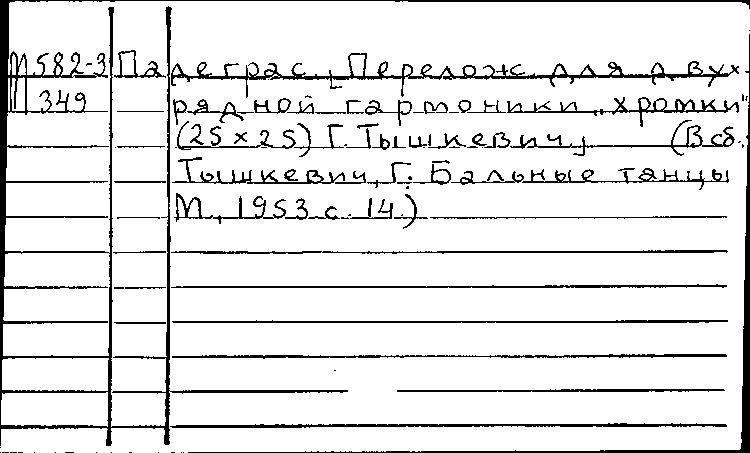 М582-3 Падеграс. [Перелож. для двух-
349 рядной гармоники „хромки"
(25×25) Г. Тышкевич] (В сб.:
Тышкевич, Г. Бальные танцы
М., 1953 с. 14.)